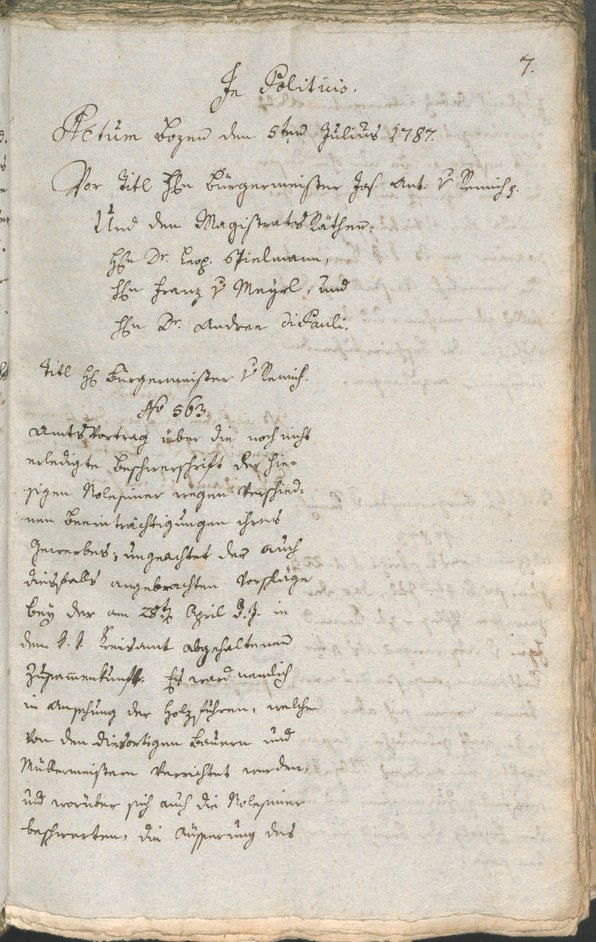 7.
In Politicis.
Actum Bozen den 5ten Julius 1787.
Vor Titl Hhn Bürgermeister Jos. Ant. v
Und den Magistrats Räthen:
Hhn Dr. Leop. Spielmann,
Hhn Franz v Mayrl, und
Hhn Dr. Andree di Pauli.
Titl H Bürgermeister v
No 563.
Amts Vortrag über die noch nicht
erledigte Beschwerschrift der hie-
sigen Rolesiner wegen verschied-
nen Beeinträchtigungen ihres
Gewerbes, ungeachtet der auch
diesfalls angebrachten Vorschläge
bey der am 28ten April d. J. in
dem k. k. Kreisamt abgehaltenen
Zusammenkunft. Es ward nemlich
in Ansehung der Holzführen, welche
von den diesortigen Bauern und
verrichtet werden,
und worüber sich auch die Rolesiner
beschwerten, die Äusserung des